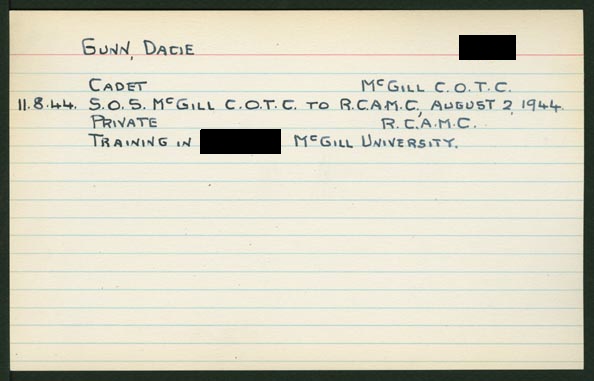 Gunn, Dacie
Cadet McGill C.O.T.C.
11.8.44. S.O.S. McGill C.O.T.C. to R.C.A.M.C., August 2, 1944.
Private R.C.A.M.C.
Training in McGill University.